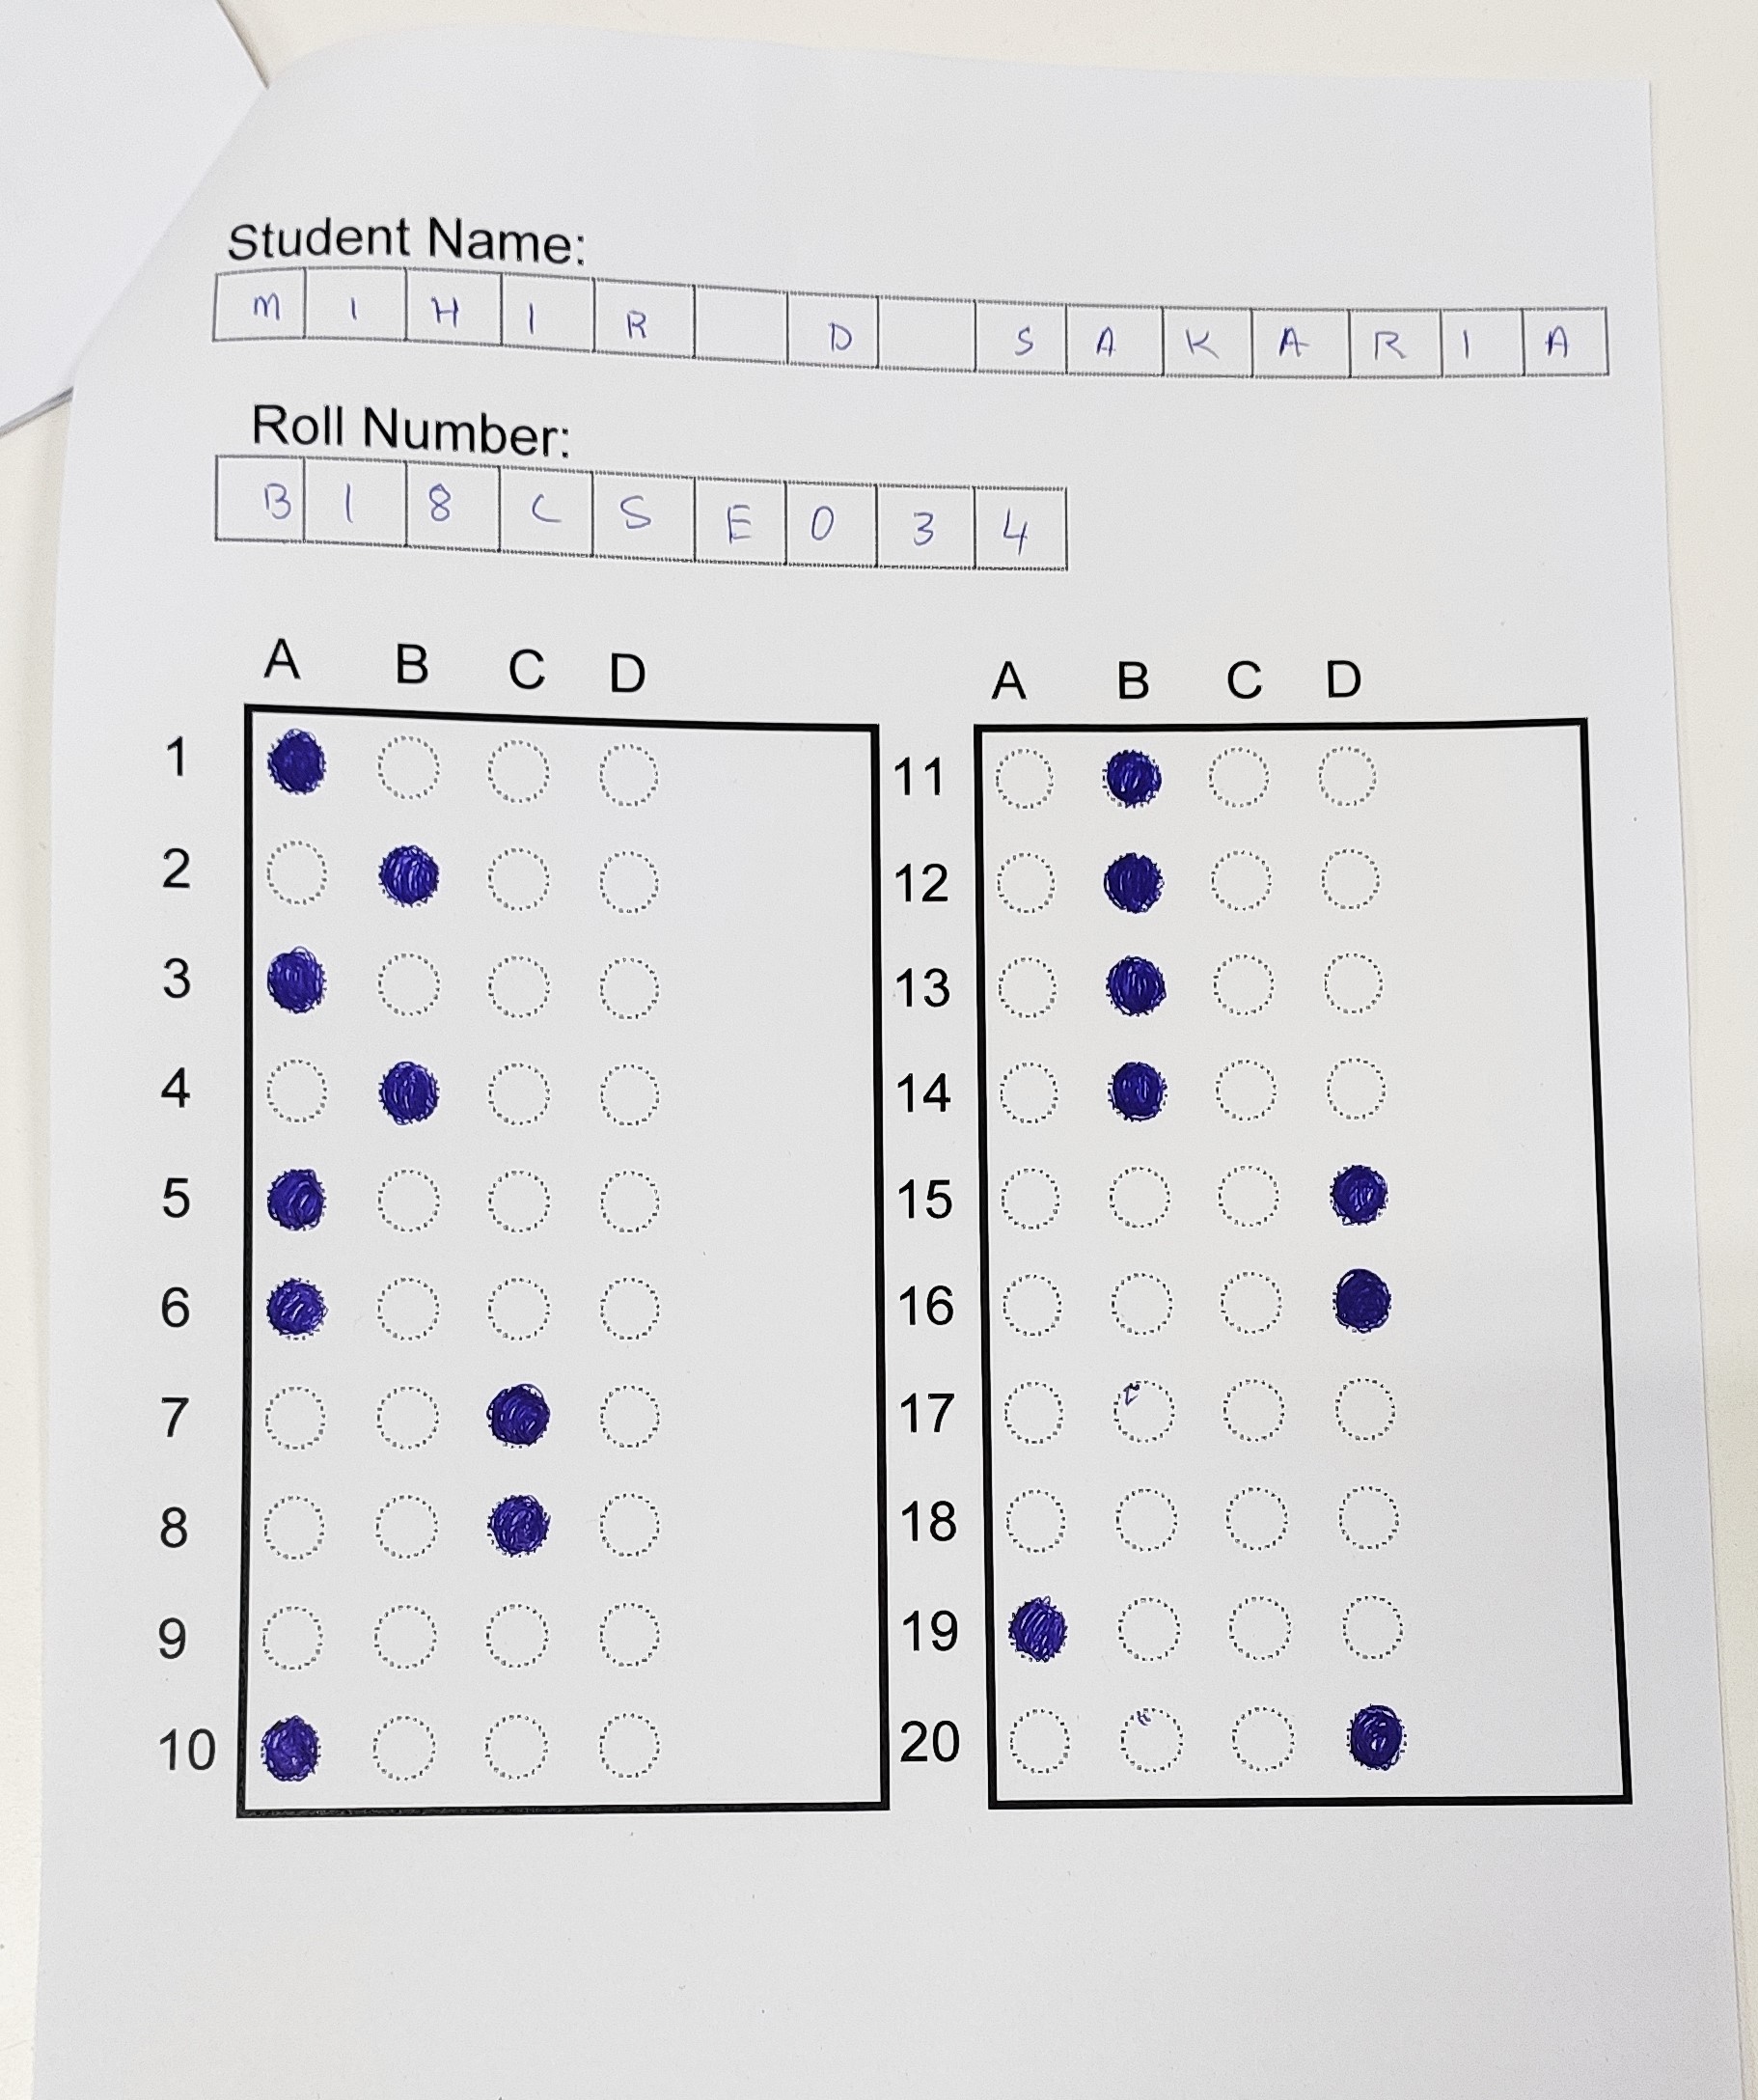 Student Name:
MIHIR D SAKARIA
Roll Number:
B18CSE034
A B C D
A B C D
1
2
3
4
5
6
7
8
9
10
11
12
13
14
15
16
17
18
19
20